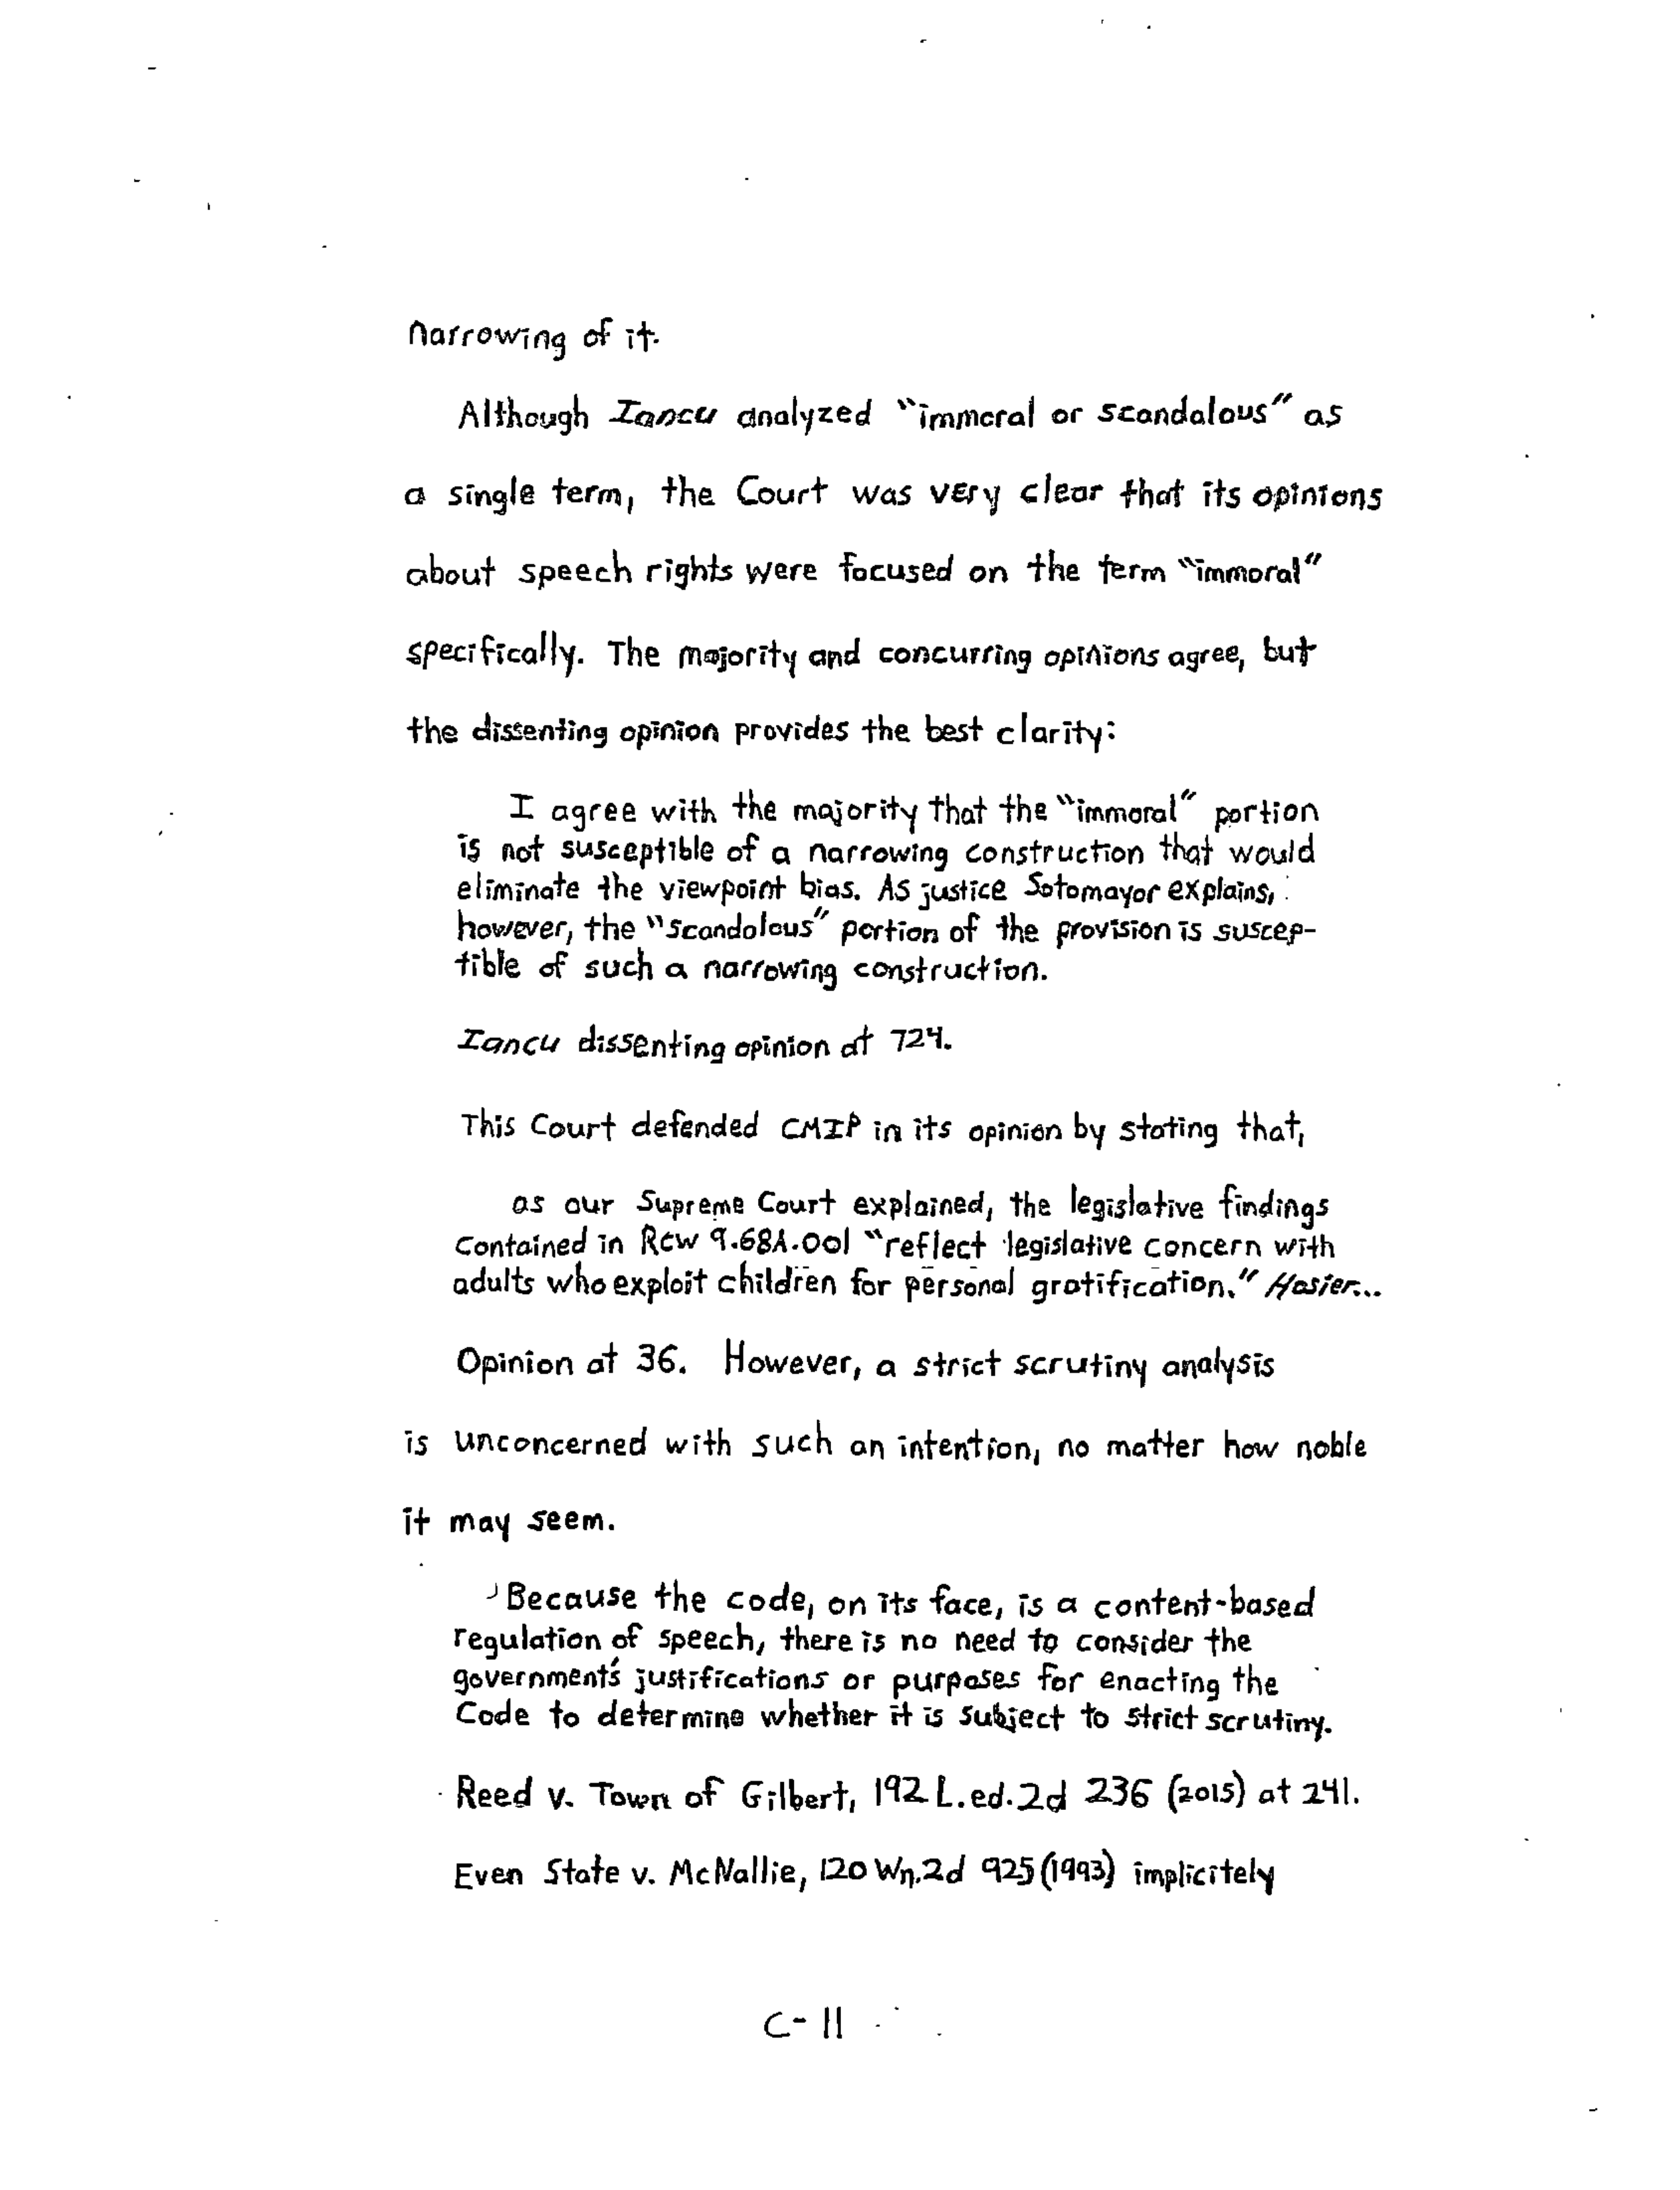 narrowing of it.
Although Iancu analyzed "immoral or scandalous" as
a single term, the Court was very clear that its opinions
about speech rights were focused on the term "immoral"
specifically. The majority and concurring opinions agree, but
the dissenting opinion provides the best clarity:
I agree with the majority that the "immoral" portion
is not susceptible of a narrowing construction that would
eliminate the viewpoint bias. As justice Sotomayor explains,
however, the "scandolous" portion of the provision is suscep-
tible of such a narrowing construction.
Iancu dissenting opinion at 724.
This Court defended CMIP in its opinion by stating that,
as our Supreme Court explained, the legislative findings
contained in RCW 9.68A.001 "reflect legislative concern with
adults who exploit children for personal gratification." Hosier...
Opinion at 36. However, a strict scrutiny analysis
is unconcerned with such an intention, no matter how noble
it may seem.
Because the code, on its face, is a content-based
regulation of speech, there is no need to consider the
government's justifications or purposes for enacting the
Code to determine whether it is subject to strict scrutiny.
Reed v. Town of Gilbert, 192 L.ed.2d 236 (2015) at 241.
Even State v. McNallie, 120 Wn.2d 925 (1993) implicitely
C-11